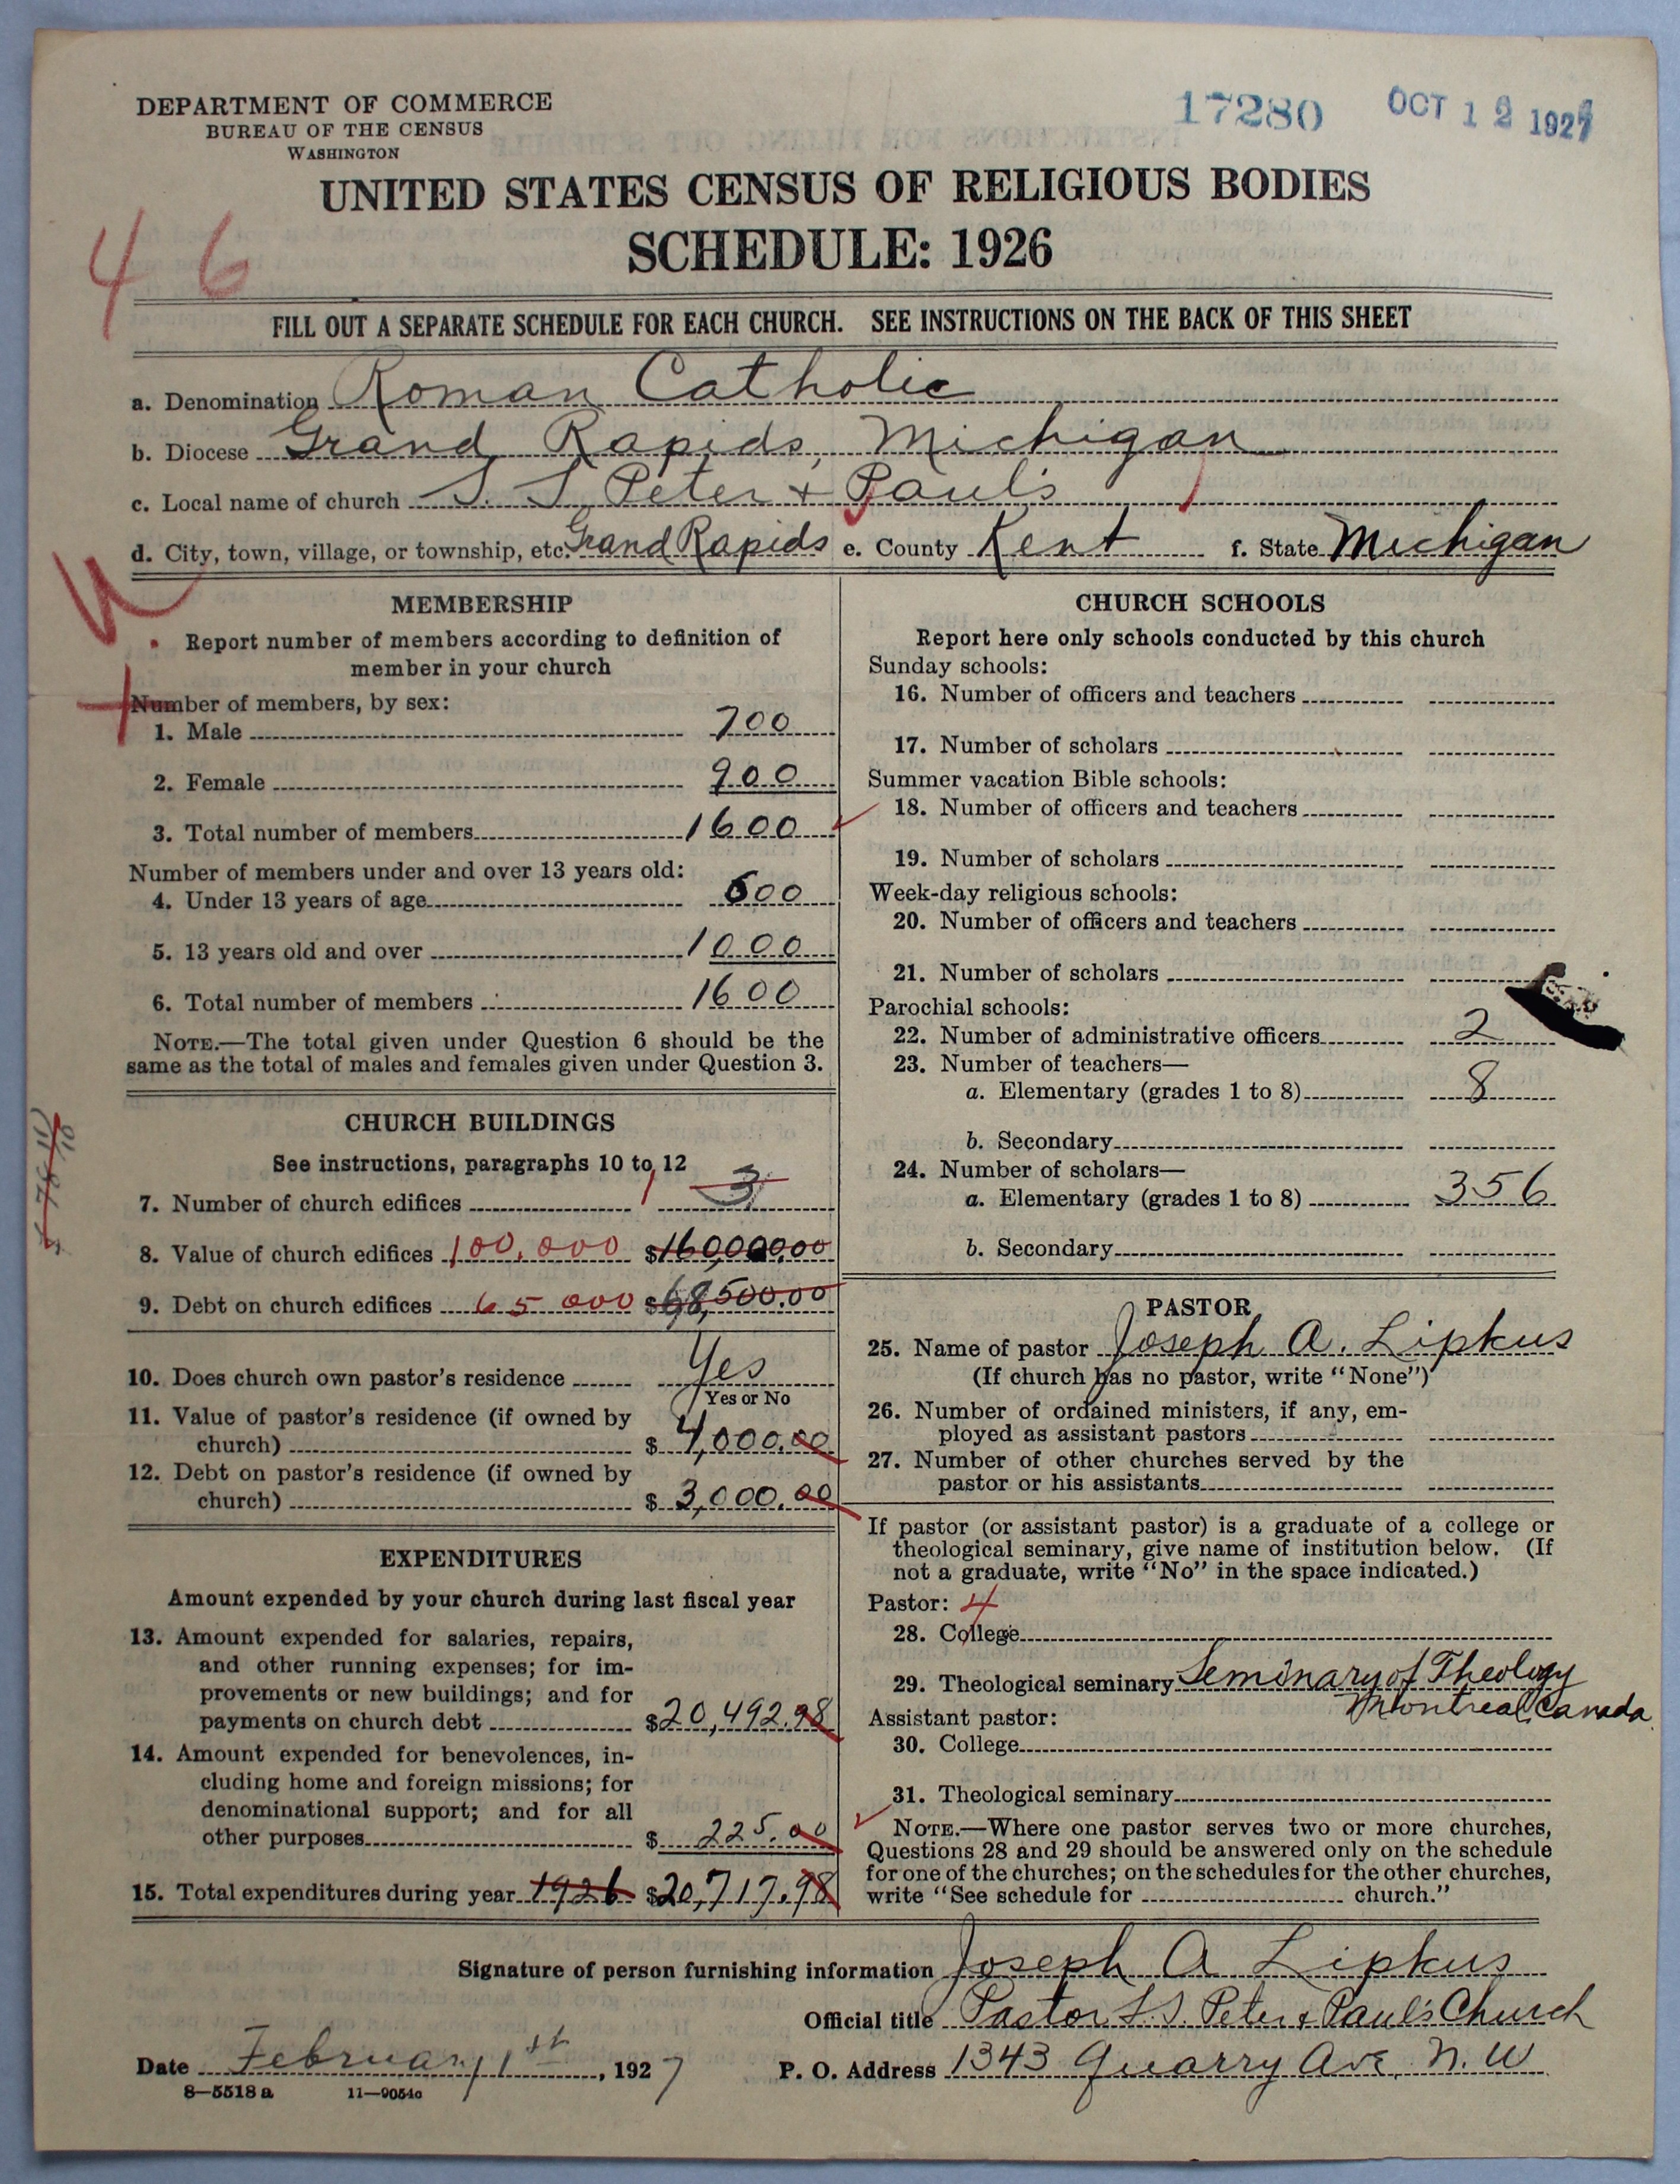 DEPARTMENT OF COMMERCE
BUREAU OF THE CENSUS
WASHINGTON
17280 OCT 12 1927
UNITED STATES CENSUS OF RELIGIOUS BODIES
SCHEDULE: 1926
46
FILL OUT A SEPARATE SCHEDULE FOR EACH CHURCH. SEE INSTRUCTIONS ON THE BACK OF THIS SHEET
a. Denomination Roman Catholic
b. Diocese Grand Rapids, Michigan
c. Local name of church S. S Peter + Paul's
d. City, town, village, or township, etc. Grand Rapids e. County Kent f. State Michigan
MEMBERSHIP
Report number of members according to definition of
member in your church
Number of members, by sex:
1. Male 700
2. Female 900
3. Total number of members 1600
Number of members under and over 13 years old:
4. Under 13 years of age 600
5. 13 years old and over 1000
6. Total number of members 1600
NOTE.—The total given under Question 6 should be the
same as the total of males and females given under Question 3.
CHURCH BUILDINGS
See instructions, paragraphs 10 to 12
7. Number of church edifices 1 3
8. Value of church edifices 100,000 $160,000.00
9. Debt on church edifices 65 000 $68,500.00
10. Does church own pastor's residence Yes
Yes or No
11. Value of pastor's residence (if owned by
church) $ 4,000.00
12. Debt on pastor's residence (if owned by
church) $ 3,000.00
EXPENDITURES
Amount expended by your church during last fiscal year
13. Amount expended for salaries, repairs,
and other running expenses; for im-
provements or new buildings; and for
payments on church debt $20,492.98
14. Amount expended for benevolences, in-
cluding home and foreign missions; for
denominational support; and for all
other purposes $ 225.00
15. Total expenditures during year 1926 $20,717.98
CHURCH SCHOOLS
Report here only schools conducted by this church
Sunday schools:
16. Number of officers and teachers
17. Number of scholars
Summer vacation Bible schools:
18. Number of officers and teachers
19. Number of scholars
Week-day religious schools:
20. Number of officers and teachers
21. Number of scholars
Parochial schools:
22. Number of administrative officers 2
23. Number of teachers—
a. Elementary (grades 1 to 8) 8
b. Secondary
24. Number of scholars—
a. Elementary (grades 1 to 8) 356
b. Secondary
PASTOR
25. Name of pastor Joseph A. Lipkus
(If church has no pastor, write "None")
26. Number of ordained ministers, if any, em-
ployed as assistant pastors
27. Number of other churches served by the
pastor or his assistants
If pastor (or assistant pastor) is a graduate of a college or
theological seminary, give name of institution below. (If
not a graduate, write "No" in the space indicated.)
Pastor: 4
28. College
29. Theological seminary Seminary of Theology
Montreal, Canada
Assistant pastor:
30. College
31. Theological seminary
NOTE.—Where one pastor serves two or more churches,
Questions 28 and 29 should be answered only on the schedule
for one of the churches; on the schedules for the other churches,
write "See schedule for church."
Signature of person furnishing information Joseph A Lipkus
Official title Pastor S.S. Peter + Paul's Church
Date February 1st, 1927 P. O. Address 1343 Quarry Ave. N. W
8—5518 a 11—9054c